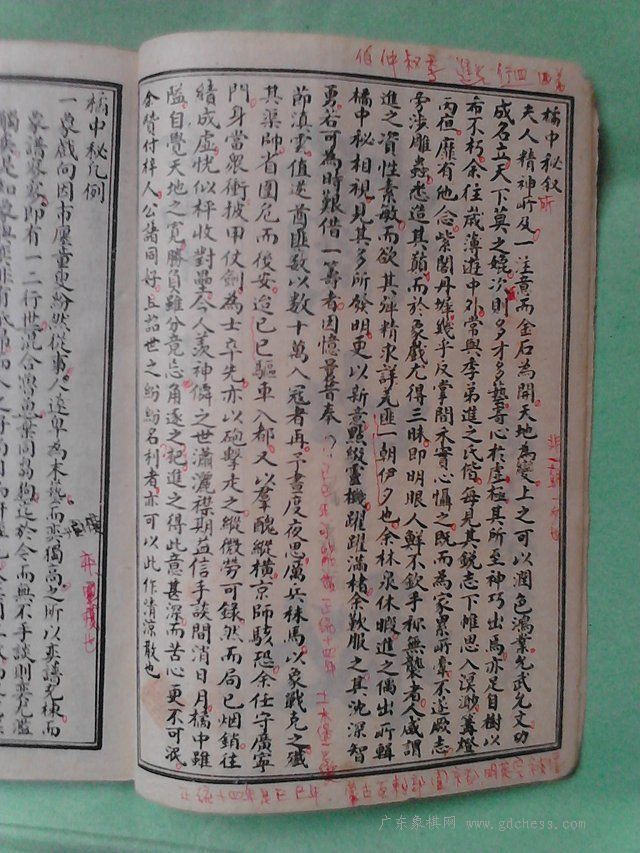 伯仲叔季 進之 行四
橘中秘叙
夫人精神所及一注意而金石為開天地為變上之可以潤色鴻業允武允文功
成名立天下莫之媲次則多才多藝專心於虛極其所至神巧出焉亦足自樹以
布不朽余往歲薄遊中外常與李弟進之氏偕每見其銳志下帷思入溟渺篝燈
丙夜靡有他念紫閣丹墀幾乎反掌間禾實心懾之既而為家累所牽不遂厥志
旁涉雕蟲悉造其巔而於象戲尤得三昧即明眼人鮮不欽手称無襲者人咸謂
進之資性素敏而欲其殫精求詳充匪一朝伊夕也余林泉休暇進之偶出所輯
橘中秘相視見其多所發明更以新意點綴靈機躍躍滿楮余歎服之其沈深智
勇若可為時艱借一籌者因憶曩昔奉
節滇雲值逆酋匪敵以數十萬入寇者再予晝度夜思厲兵秣馬以象戰克之殲
其渠帥省圍危而後安迨己巳驅車入都又以羣醜縱橫京師駭恐余任守廣寧
門身當衆衝披甲仗劍為士卒先亦以砲擊走之縱微勞可錄然而局已烟銷往
績成虛恍似枰收對壘今人羡神僯之世瀟灑襟期益信手談間消日月橘中雖
隘自覺天地之寬勝負雖分竟忘角逐之記進之得此意甚深而苦心更不可泯
余賛付梓人公諸同好長詔世之紛紛名利者亦可以此作清涼散也
橘中秘凡例
一象戲向因市廛童叟紛然從事人遂卑為末藝而奕獨高之所以奕譜充棟而
象譜寥寥即有一二行世混合
广东象棋网 www.gdchess.com